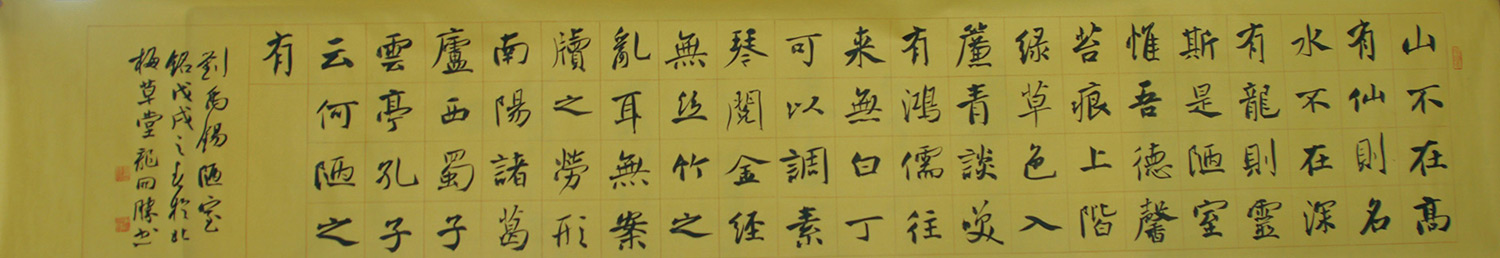 山不在高
有仙則名
水不在深
有龍則靈
斯是陋室
惟吾德馨
苔痕上階
绿草色入
簾青談笑
有鴻儒往
来無白丁
可以調素
琴閱金经
無丝竹之
亂耳無案
牘之勞形
南陽諸葛
廬西蜀子
雲亭孔子
云何陋之
有
劉禹锡陋室
銘戊戌之春於北
梅草堂龍回勝书